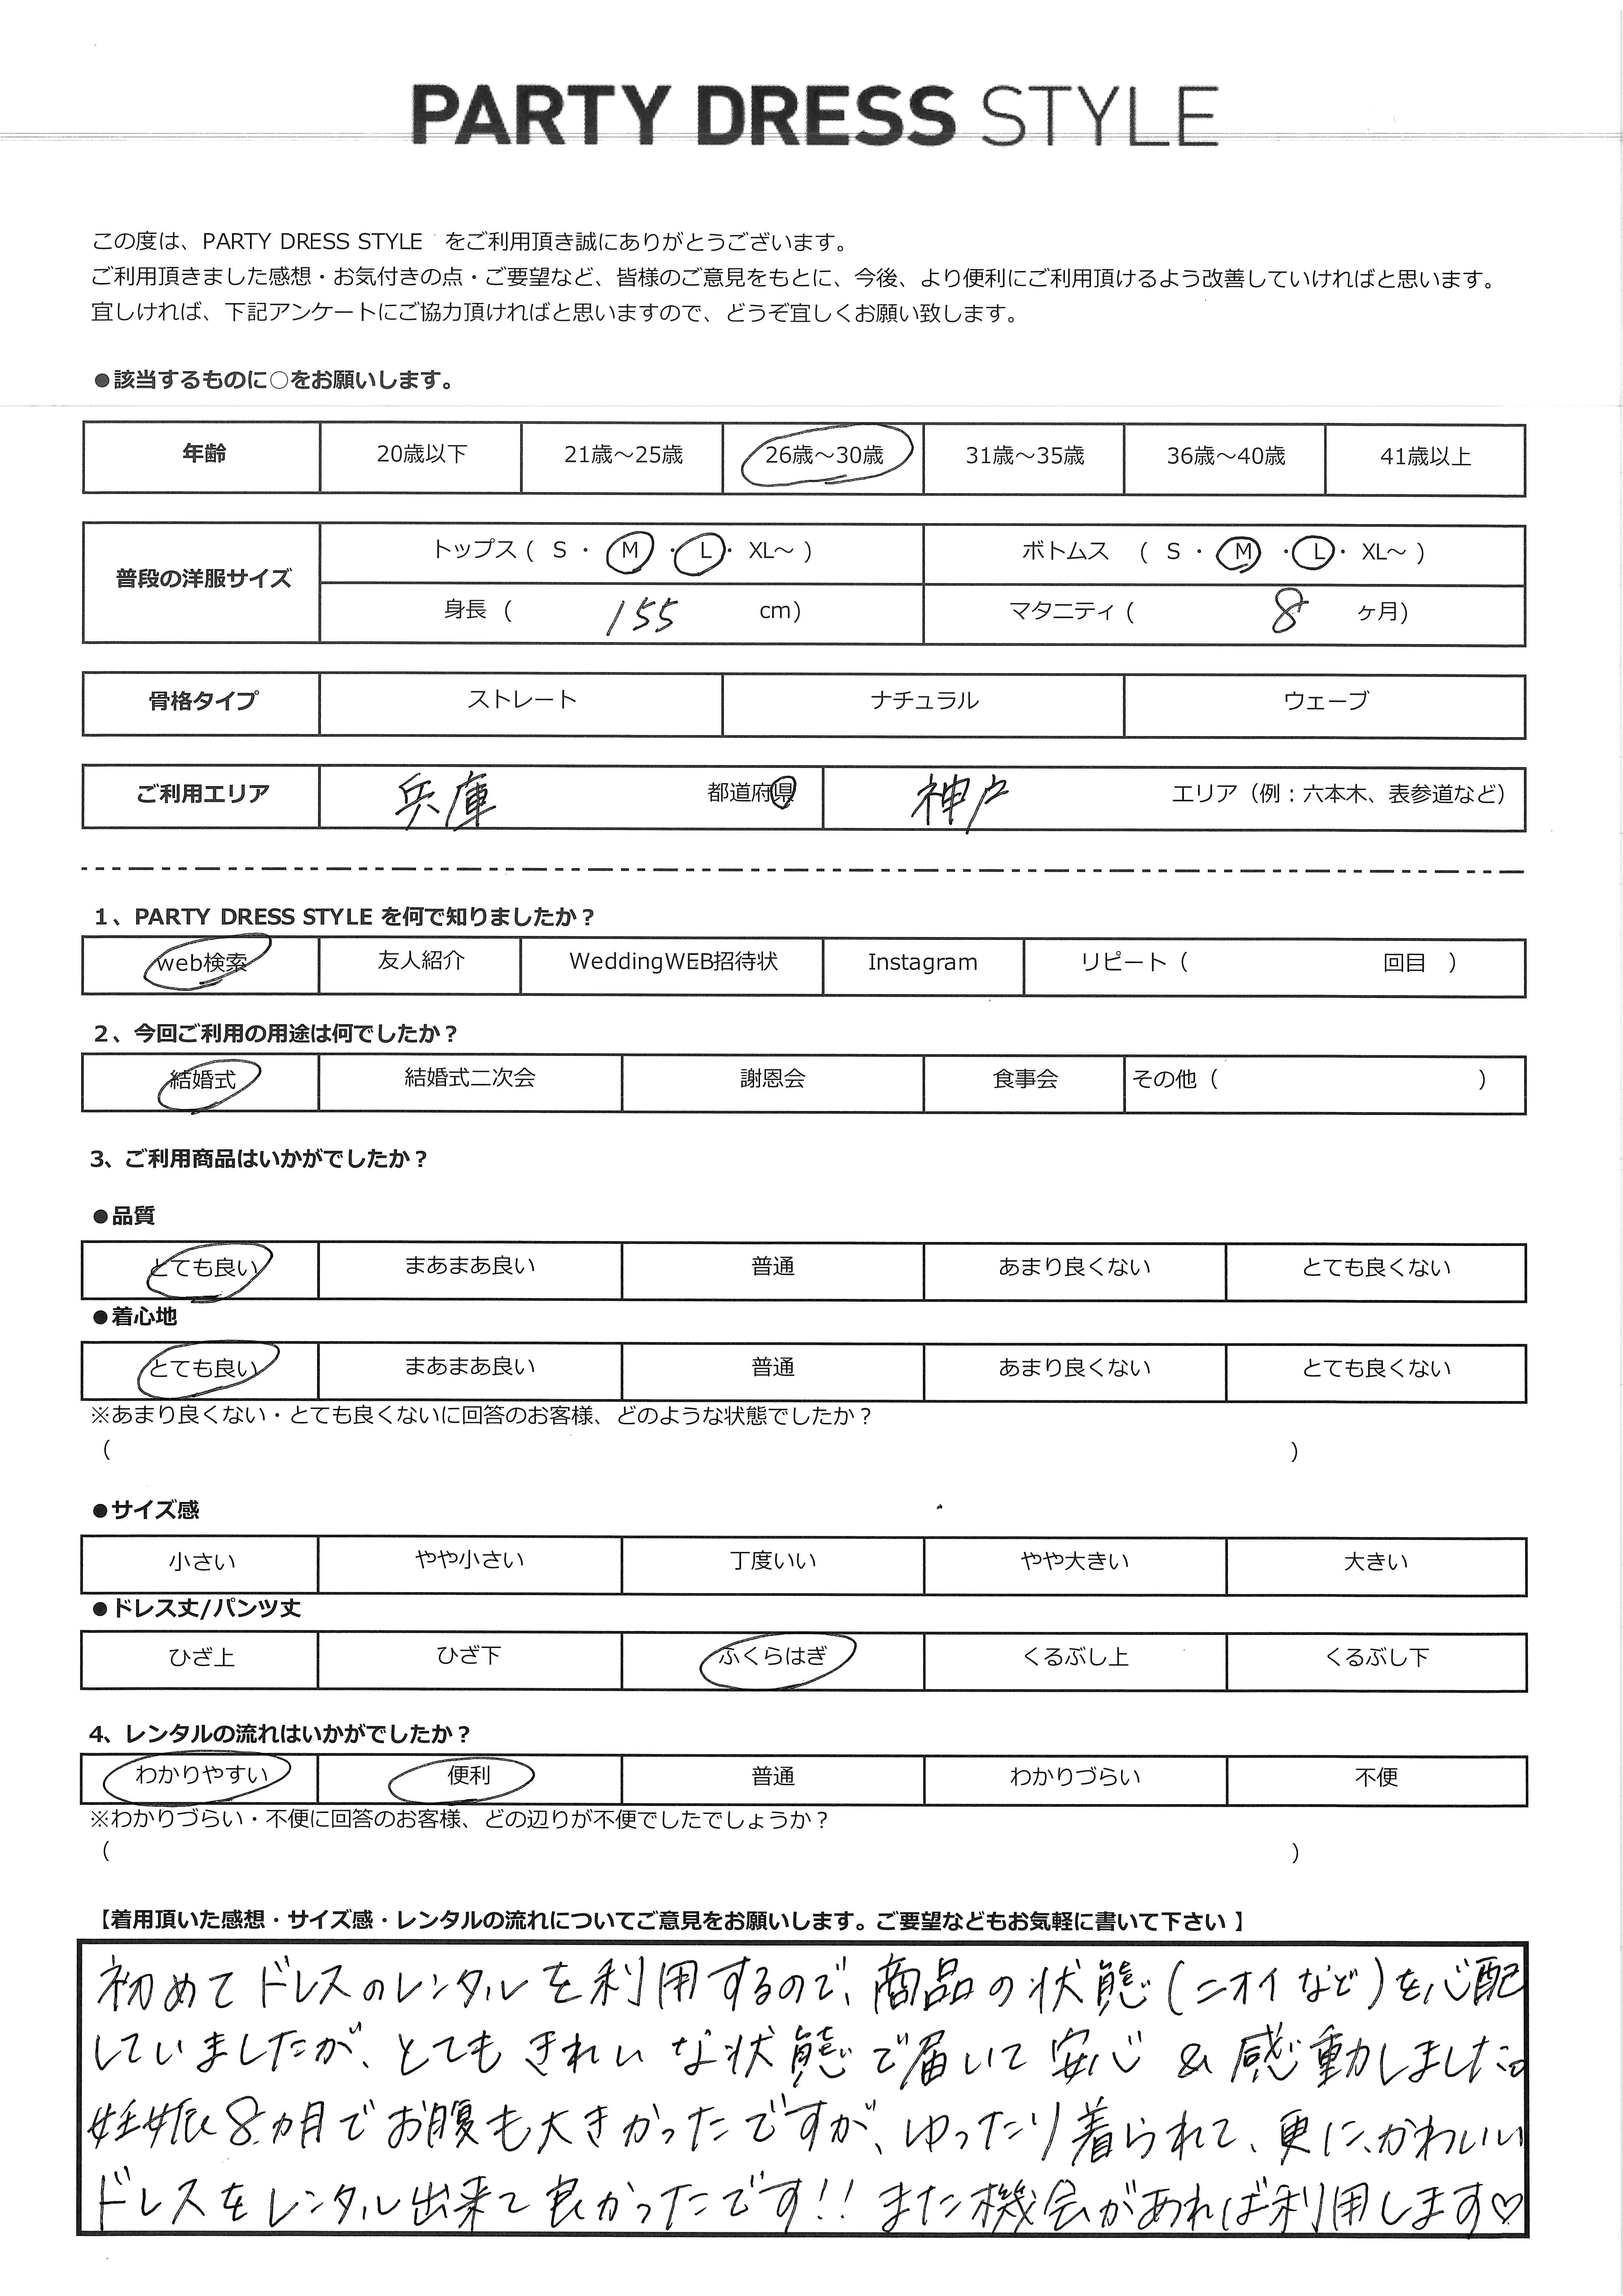 PARTY DRESS STYLE
この度は、PARTY DRESS STYLE をご利用頂き誠にありがとうございます。
ご利用頂きました感想・お気付きの点・ご要望など、皆様のご意見をもとに、今後、より便利にご利用頂けるよう改善していければと思います。
宜しければ、下記アンケートにご協力頂ければと思いますので、どうぞ宜しくお願い致します。
●該当するものに○をお願いします。
年齢 20歳以下 21歳～25歳 26歳～30歳 31歳～35歳 36歳～40歳 41歳以上
普段の洋服サイズ トップス ( S ・ M ・ L ・ XL～ ) ボトムス ( S ・ M ・ L ・ XL～ )
身長 ( 155 cm) マタニティ ( 8 ヶ月)
骨格タイプ ストレート ナチュラル ウェーブ
ご利用エリア 兵庫 都道府県 神戸 エリア（例：六本木、表参道など）
1、PARTY DRESS STYLE を何で知りましたか？
web検索 友人紹介 WeddingWEB招待状 Instagram リピート（ 回目 ）
2、今回ご利用の用途は何でしたか？
結婚式 結婚式二次会 謝恩会 食事会 その他（ ）
3、ご利用商品はいかがでしたか？
●品質
とても良い まあまあ良い 普通 あまり良くない とても良くない
●着心地
とても良い まあまあ良い 普通 あまり良くない とても良くない
※あまり良くない・とても良くないに回答のお客様、どのような状態でしたか？
（ ）
●サイズ感
小さい やや小さい 丁度いい やや大きい 大きい
●ドレス丈/パンツ丈
ひざ上 ひざ下 ふくらはぎ くるぶし上 くるぶし下
4、レンタルの流れはいかがでしたか？
わかりやすい 便利 普通 わかりづらい 不便
※わかりづらい・不便に回答のお客様、どの辺りが不便でしたでしょうか？
（ ）
【着用頂いた感想・サイズ感・レンタルの流れについてご意見をお願いします。ご要望などもお気軽に書いて下さい 】
初めてドレスのレンタルを利用するので、商品の状態(ニオイなど)を心配
していましたが、とてもきれいな状態で届いて安心 & 感動しました。
妊娠8ヵ月でお腹も大きかったですが、ゆったり着られて、更に、かわいい
ドレスをレンタル出来て良かったです!! また機会があれば利用します♡